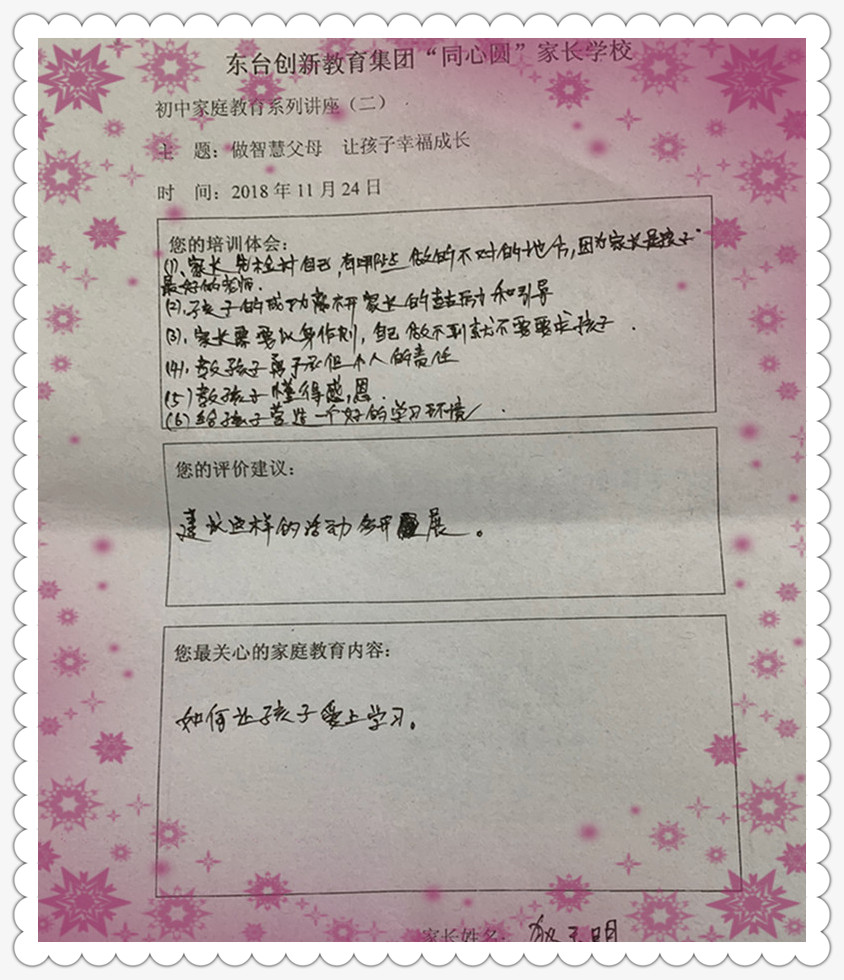 东台创新教育集团“同心圆”家长学校
初中家庭教育系列讲座（二）
主 题：做智慧父母 让孩子幸福成长
时 间：2018年11月24日
您的培训体会：
(1)、家长先检讨自己，有哪些做的不对的地方，因为家长是孩子
最好的老师．
(2)、孩子的成功离不开家长的鼓励和引导
(3)、家长需要以身作则，自己做不到就不要要求孩子．
(4)、教孩子勇于承担个人的责任
(5)教孩子懂得感恩．
(6)给孩子营造一个好的学习环境
您的评价建议：
建议这样的活动多开展。
您最关心的家庭教育内容：
如何让孩子爱上学习。
家长姓名：